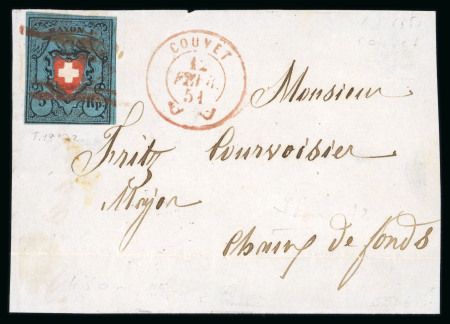 RAYON I
5 Rp
COUVET
12
FEVR.
51
Monsieur
Fritz Courvoisier
Major
Chaux de fonds